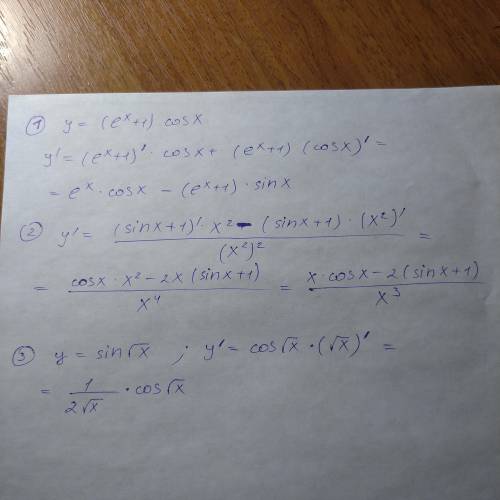 ① y = (eˣ+1) cosx
y' = (eˣ+1)' · cosx + (eˣ+1) (cosx)' =
= eˣ · cosx − (eˣ+1) · sinx
② y' = ((sinx+1)' · x² − (sinx+1) · (x²)') / (x²)² =
= (cosx · x² − 2x (sinx+1)) / x⁴ = (x · cosx − 2 (sinx+1)) / x³
③ y = sin√x ; y' = cos√x · (√x)' =
= 1 / (2√x) · cos√x